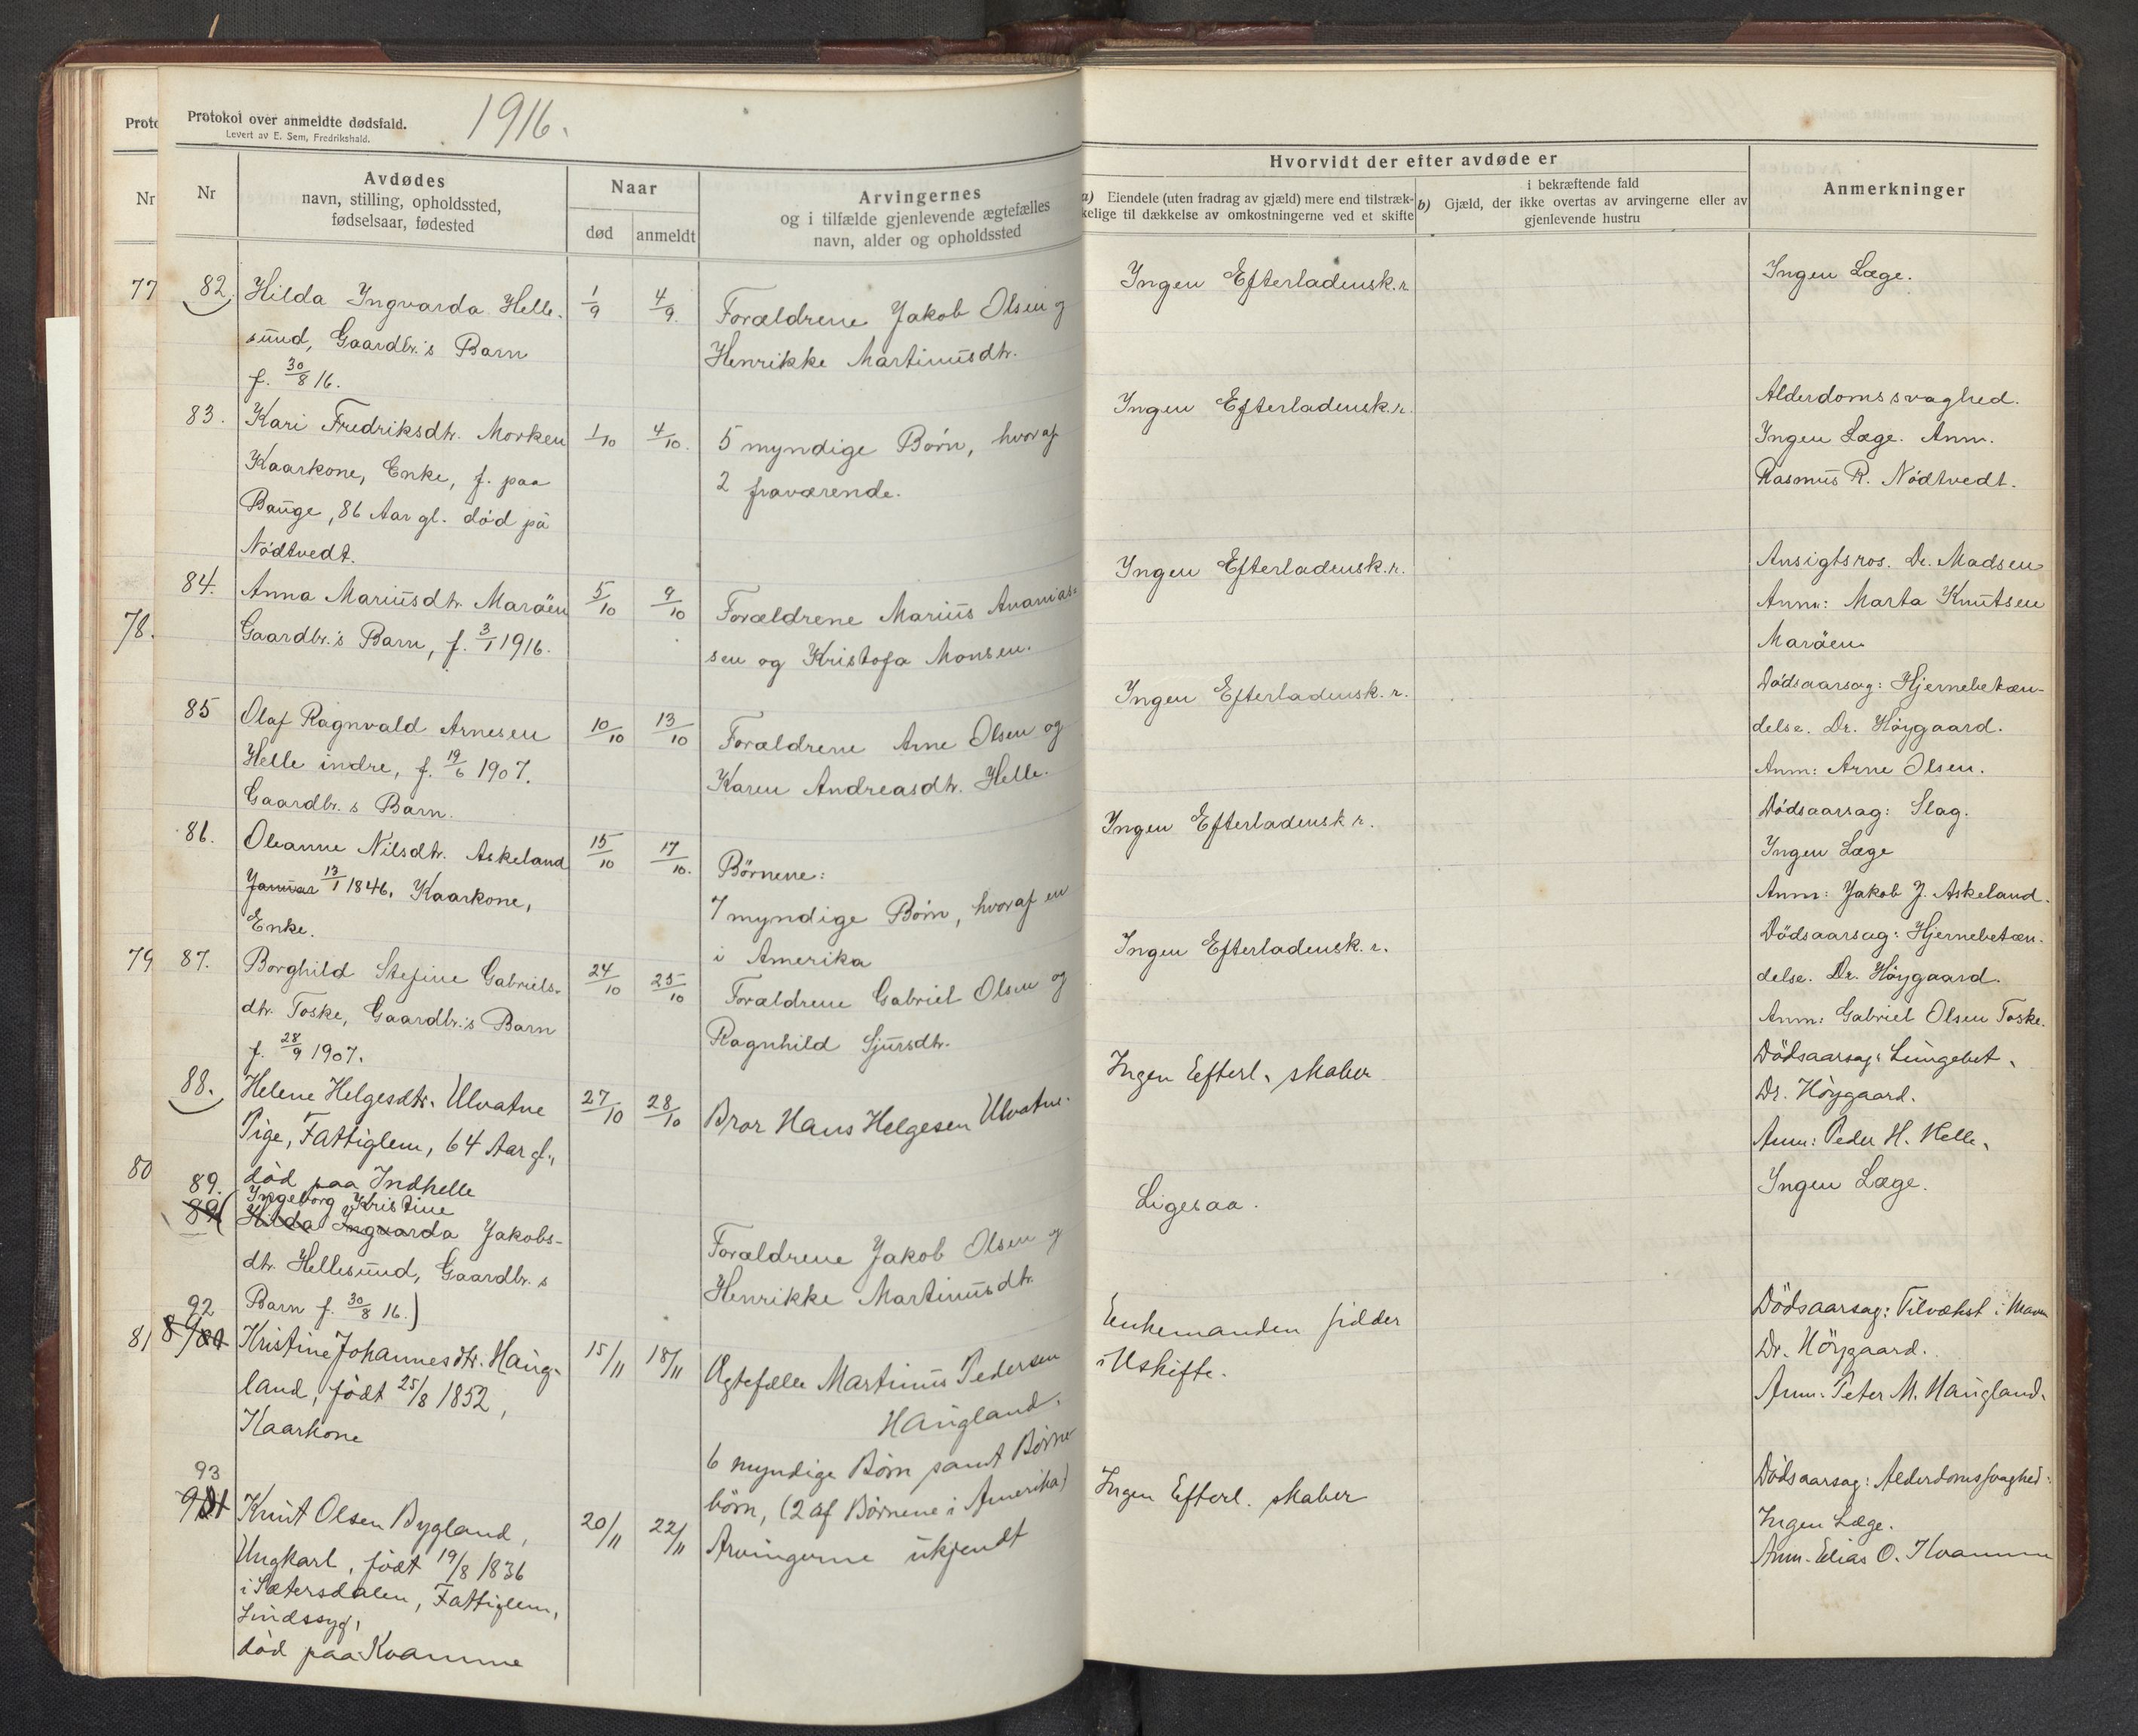 Proto
Nr
77
78.
79
80
81
Protokol over anmeldte dødsfald.
Levert av E. Sem, Fredrikshald.
1916.
Nr
Avdødes
navn, stilling, opholdssted,
fødselsaar, fødested
Naar
død
anmeldt
Arvingernes
og i tilfælde gjenlevende ægtefælles
navn, alder og opholdssted
Hvorvidt der efter avdøde er
a) Eiendele (uten fradrag av gjæld) mere end tilstræk-
kelige til dækkelse av omkostningerne ved et skifte
i bekræftende fald
b) Gjæld, der ikke overtas av arvingerne eller av
gjenlevende hustru
Anmerkninger
82. Hilda Ingvarda Helle-
sund, Gaardbr.'s Barn
f. 30/8 16.
1/9
4/9.
Forældrene Jakob Olsen og
Henrikke Martinusdtr.
Ingen Efterladensk.r
Ingen Læge.
83. Kari Fredriksdtr. Morken
Kaarkone, Enke, f. paa
Bauge, 86 Aar gl. død på
Nödtvedt.
1/10
4/10.
5 myndige Börn, hvoraf
2 fraværende.
Ingen Efterladensk.r.
Alderdomssvaghed.
Ingen Læge. Anm.
Rasmus R. Nödtvedt.
84. Anna Mariusdtr. Maröen
Gaardbr.'s Barn, f. 3/1 1916.
5/10
9/10
Forældrene Marius Ananias=
sen og Kristofa Monsen.
Ingen Efterladensk.r.
Ansigtsros. Dr. Madsen
Anm: Marta Knutsen
Maröen
85 Olaf Ragnvald Arnesen
Helle indre, f. 19/6 1907.
Gaardbr.s Barn.
10/10
13/10
Forældrene Arne Olsen og
Karen Andreasdtr. Helle.
Ingen Efterladensk.r.
Dödsaarsag: Hjernebetæn-
delse. Dr. Höygaard.
Anm: Arne Olsen.
86. Oleanne Nilsdtr. Askeland
Januar 13/1 1846. Kaarkone,
Enke.
15/10
17/10.
Børnene:
7 myndige Börn, hvoraf en
i Amerika
Ingen Efterladensk r.
Dödsaarsag: Slag.
Ingen Læge
Anm: Jakob J. Askeland.
87. Borghild Stefine Gabriels-
dtr. Toske, Gaardbr.'s Barn
f. 28/9 1907.
24/10
25/10
Forældrene Gabriel Olsen og
Ragnhild Sjursdtr.
Ingen Efterladensk.r.
Dödsaarsag: Hjernebetæn-
delse. Dr. Höygaard.
Anm: Gabriel Olsen Toske.
88. Helene Helgesdtr. Ulvatne
Pige, Fattiglem, 64 Aar gl.,
död paa Indhelle
27/10
28/10
Bror Hans Helgesen Ulvatne.
Ingen Efterl. skaber
Dödsaarsag: Lungebet.
Dr. Höygaard.
Anm: Peder H. Helle.
89. Ingeborg Kristine
89 (Hilda Ingvarda Jakobs-
dtr. Hellesund, Gaardbr.s
Barn f. 30/8 16.)
Forældrene Jakob Olsen og
Henrikke Martinusdtr.
Ligesaa.
Ingen Læge.
92
Kristine Johannesdtr. Haug-
land, födt 25/8 1852,
Kaarkone
15/11
18/11
Ægtefælle Martinus Pedersen
Haugland.
6 myndige Börn samt Börne
börn, (2 af Börnene i Amerika)
Enkemanden sidder
i Uskifte.
Dödsaarsag: Tilvækst i Maven
Dr. Höygaard.
Anm. Peter M. Haugland.
93
Knut Olsen Bygland,
Ungkarl, födt 19/8 1836
i Sætersdalen, Fattiglem,
Sindssyg,
död paa Kvamme
20/11
22/11
Arvingerne ukjendt
Ingen Efterl. skaber
Dödsaarsag: Alderdomssvaghed.
Ingen Læge.
Anm. Elias O. Kvamme